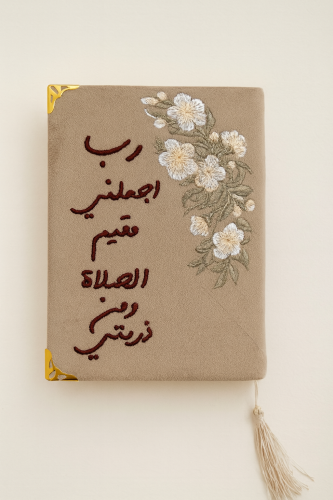 رب
اجعلني
مقيم
الصلاة
ومن
ذريتي